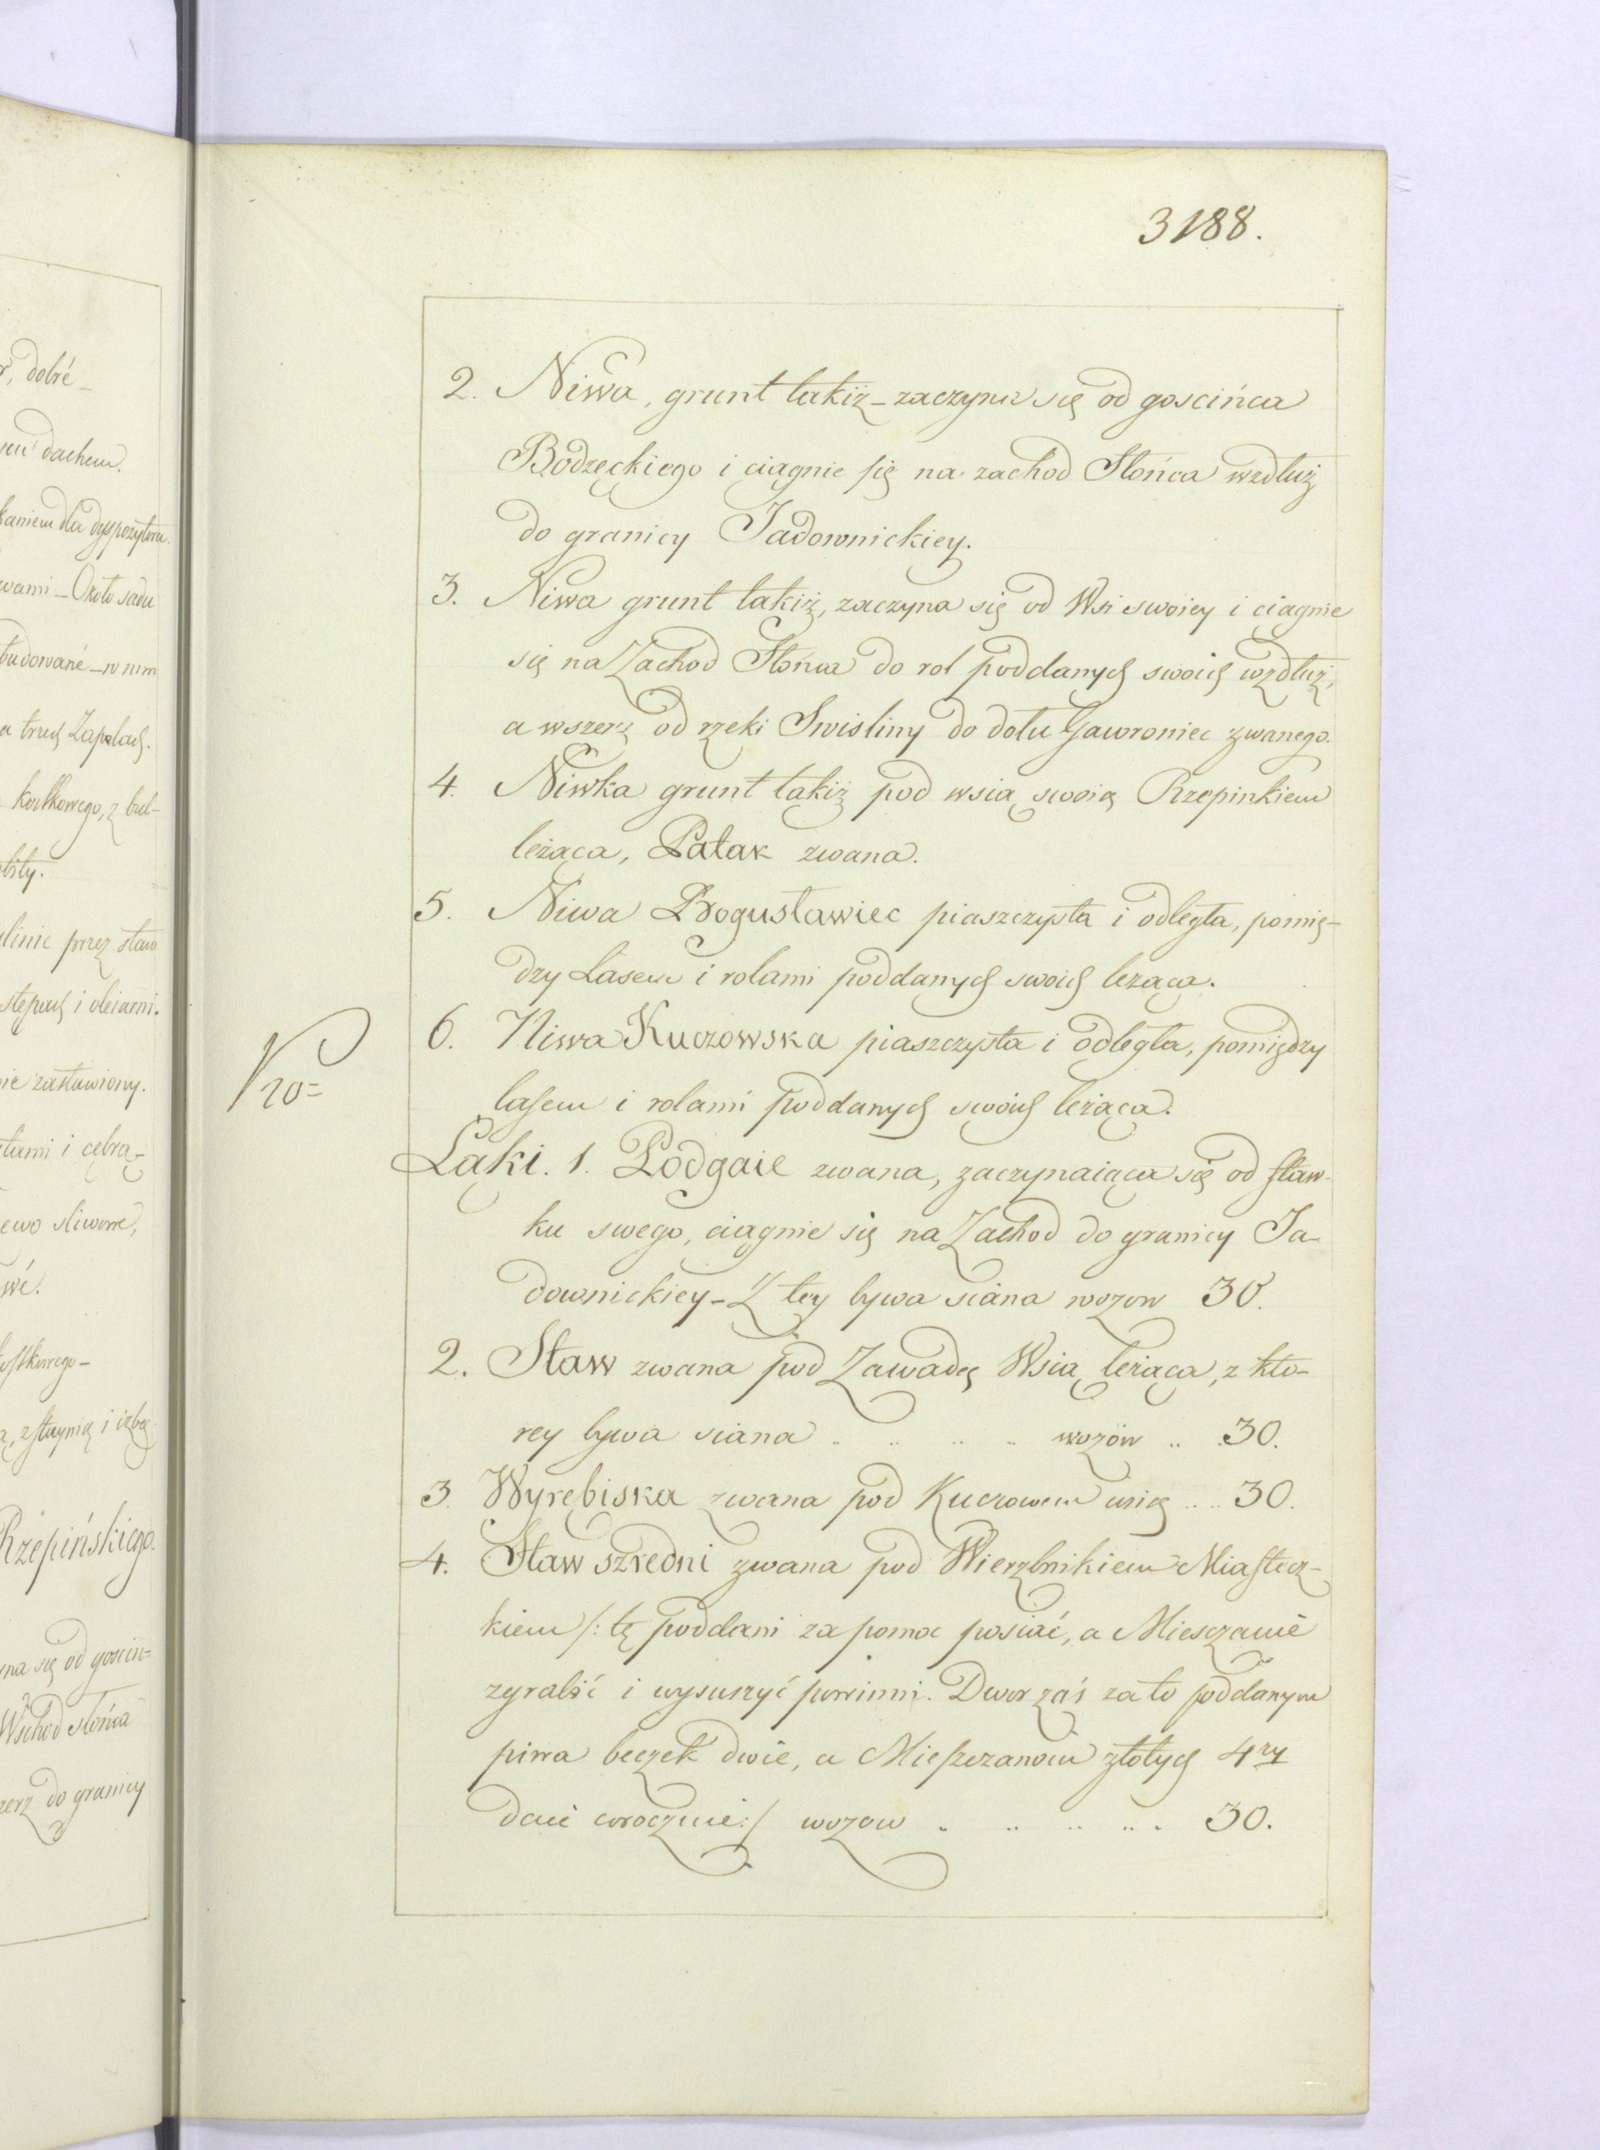 r, dobré_
dachem.
kaniem dla dyspozytora.
wami_Około sadu
budowané_w nim
a trzech Zapolach.
kostkowego, z bul-
bity.
linie przez staw
stępach i oleiarni.
nie zastawiony.
tami i cębrą_
ewo śliwowe,
wé.
kostkowego_
ą, z staynią i izbą.
Rzepińskiego.
yna się od gościn=
Wschod słońca
zerz do granicy
3188.
2. Niwa, grunt takiż_zaczyna się od goscińca
Bodzęckiego i ciągnie się na zachod Słońca wzdłuż
do granicy Jadownickiey.
3. Niwa grunt takiż, zaczyna się od Wsi swoiey i ciągnie
się na Zachod Słońca do rol poddanych swoich wzdłuż,
a wszerz od rzeki Swisliny do dołu Gawroniec zwanego.
4. Niwka grunt takiż pod wsią swoią Rzepinkiem
leżąca, Pałak zwana.
5. Niwa Bogusławiec piaszczysta i odległa, pomię-
dzy Lasem i rolami poddanych swoich leżąca.
6. Niwa Kuczowska piaszczysta i odległa, pomiędzy
lasem i rolami poddanych swoich leżąca.
20=
Łąki. 1. Podgaie zwana, zaczynaiąca się od staw-
ku swego, ciągnie się na Zachod do granicy Ja-
downickiey_Z tey bywa siana wozow 30.
2. Staw zwana pod Zawadą Wsią leżąca, z kto-
rey bywa siana .. .. .. .. wozów .. 30.
3. Wyrębiska zwana pod Kuczowem wsią .. .. 30.
4. Staw szredni zwana pod Wierzbnikiem Miastecz-
kiem /: tę poddani za pomoc posiać, a Miesczanie
zgrabić i wysuszyć powinni. Dwor zaś za to poddanym
piwa beczek dwie, a Mieszczanom złotych 4ry
daie corocznie :/ wozow .. .. .. .. . 30.